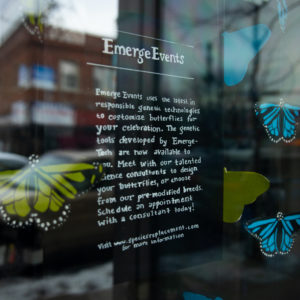 EmergeEvents
Emerge Events uses the latest in
responsible genetic technologies
to customize butterflies for
your celebration. The genetic
tools developed by Emerge-
Tech are now available to
you. Meet with our talented
science consultants to design
your butterflies, or choose
from our pre-modified breeds.
Schedule an appointment
with a consultant today!
Visit www.speciesreplacement.com
for more information